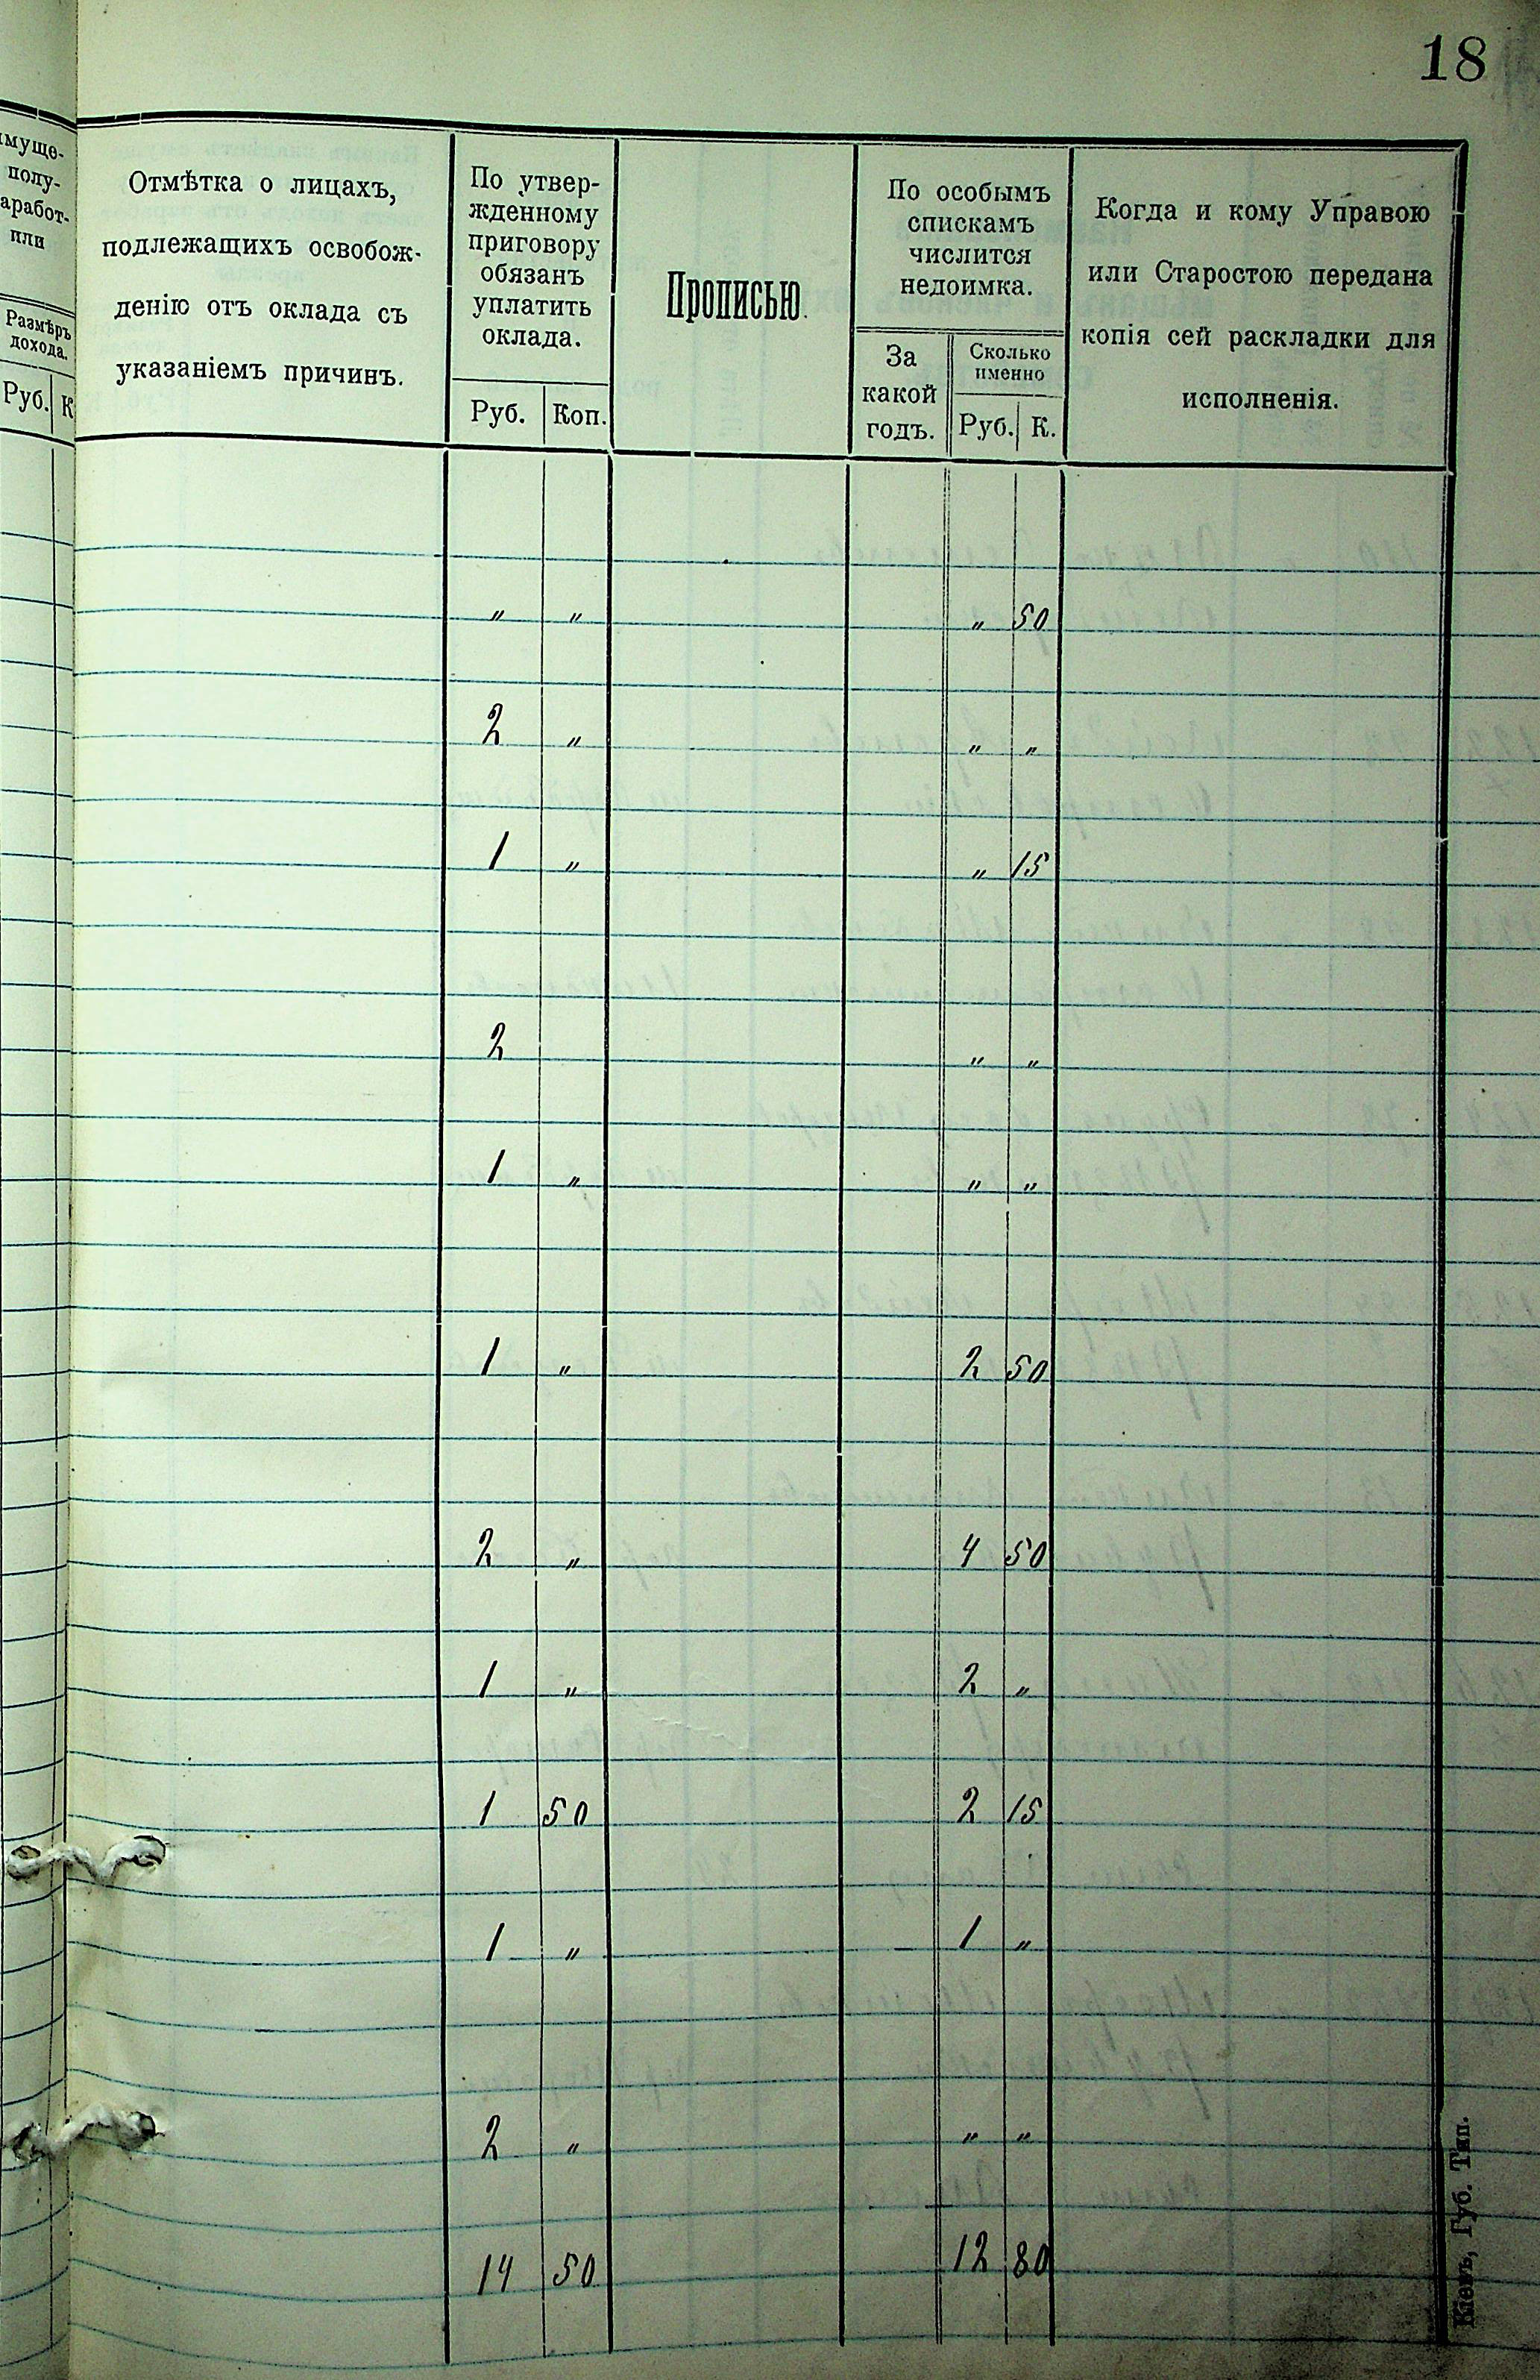 18
муще-
полу-
аработ-
или
Размѣръ
дохода.
Руб. К
Отмѣтка о лицахъ,
подлежащихъ освобож-
денію отъ оклада съ
указаніемъ причинъ.
По утвер-
жденному
приговору
обязанъ
уплатить
оклада.
Руб. Коп.
Прописью.
По особымъ
спискамъ
числится
недоимка.
За
какой
годъ.
Сколько
именно
Руб. К.
Когда и кому Управою
или Старостою передана
копія сей раскладки для
исполненія.
" " " 50
2 " " "
1 " " 15
2 " "
1 " " "
1 " 2 50
2 " 4 50
1 " 2 "
1 50 2 15
1 " 1 "
2 " " "
14 50 12 80
Кіевъ, Губ. Тип.